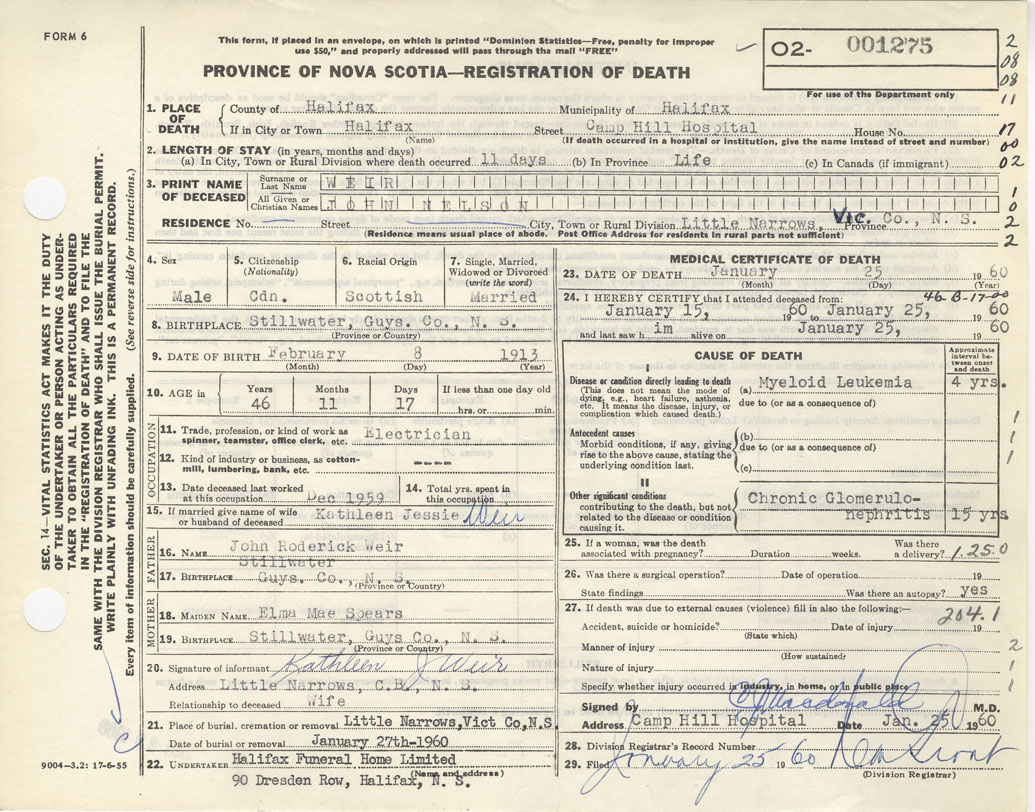 FORM 6
This form, if placed in an envelope, on which is printed "Dominion Statistics—Free, penalty for improper
use $50," and properly addressed will pass through the mail "FREE"
PROVINCE OF NOVA SCOTIA—REGISTRATION OF DEATH
02- 001275
For use of the Department only
2
08
08
11
17
00
02
1
0
2
2
SEC. 14—VITAL STATISTICS ACT MAKES IT THE DUTY
OF THE UNDERTAKER OR PERSON ACTING AS UNDER-
TAKER TO OBTAIN ALL THE PARTICULARS REQUIRED
IN THE "REGISTRATION OF DEATH" AND TO FILE THE
SAME WITH THE DIVISION REGISTRAR WHO SHALL ISSUE THE BURIAL PERMIT.
WRITE PLAINLY WITH UNFADING INK. THIS IS A PERMANENT RECORD.
Every item of information should be carefully supplied. (See reverse side for instructions.)
1. PLACE OF DEATH
County of Halifax Municipality of Halifax
If in City or Town Halifax Street Camp Hill Hospital House No.
(Name) (If death occurred in a hospital or institution, give the name instead of street and number)
2. LENGTH OF STAY (in years, months and days)
(a) In City, Town or Rural Division where death occurred 11 days (b) In Province Life (c) In Canada (if immigrant)
3. PRINT NAME OF DECEASED
Surname or Last Name WEIR
All Given or Christian Names JOHN NELSON
RESIDENCE No. — Street — City, Town or Rural Division Little Narrows, Vic. Co., N. S. Province
(Residence means usual place of abode. Post Office Address for residents in rural parts not sufficient)
4. Sex
Male
5. Citizenship
(Nationality)
Cdn.
6. Racial Origin
Scottish
7. Single, Married,
Widowed or Divorced
(write the word)
Married
8. BIRTHPLACE Stillwater, Guys. Co., N. S.
(Province or Country)
9. DATE OF BIRTH February 8 1913
(Month) (Day) (Year)
10. AGE in
Years 46
Months 11
Days 17
If less than one day old
hrs. or min.
OCCUPATION
11. Trade, profession, or kind of work as
spinner, teamster, office clerk, etc. Electrician
12. Kind of industry or business, as cotton-
mill, lumbering, bank, etc. ----
13. Date deceased last worked
at this occupation Dec 1959
14. Total yrs. spent in
this occupation
15. If married give name of wife
or husband of deceased Kathleen Jessie Weir
FATHER
16. NAME John Roderick Weir
Stillwater
17. BIRTHPLACE Guys. Co., N. S.
(Province or Country)
MOTHER
18. MAIDEN NAME Elma Mae Spears
19. BIRTHPLACE Stillwater, Guys Co., N. S.
(Province or Country)
20. Signature of informant Kathleen J Weir
Address Little Narrows, C.B., N. S.
Relationship to deceased Wife
21. Place of burial, cremation or removal Little Narrows, Vict Co, N.S.
Date of burial or removal January 27th-1960
22. UNDERTAKER Halifax Funeral Home Limited
(Name and address)
90 Dresden Row, Halifax, N. S.
9004-3.2: 17-6-55
MEDICAL CERTIFICATE OF DEATH
23. DATE OF DEATH January 25 1960
(Month) (Day) (Year)
24. I HEREBY CERTIFY that I attended deceased from: 46-B-17-00
January 15, 1960 to January 25, 1960
and last saw him alive on January 25, 1960
CAUSE OF DEATH
Approximate
interval be-
tween onset
and death
I
Disease or condition directly leading to death
(This does not mean the mode of
dying, e.g., heart failure, asthenia,
etc. It means the disease, injury, or
complication which caused death.)
(a) Myeloid Leukemia 4 yrs.
due to (or as a consequence of)
Antecedent causes
Morbid conditions, if any, giving
rise to the above cause, stating the
underlying condition last.
(b)
due to (or as a consequence of)
(c)
1
1
1
II
Other significant conditions
contributing to the death, but not
related to the disease or condition
causing it.
Chronic Glomerulo-
nephritis 15 yrs
25. If a woman, was the death
associated with pregnancy? Duration weeks. Was there
a delivery? 1.250
26. Was there a surgical operation? Date of operation 19
State findings Was there an autopsy? yes
27. If death was due to external causes (violence) fill in also the following:— 204.1
Accident, suicide or homicide? Date of injury 19
(State which)
Manner of injury 2
(How sustained?)
Nature of injury 1
Specify whether injury occurred in industry, in home, or in public place 1
Signed by M.D.
Address Camp Hill Hospital Date Jan. 25 1960
28. Division Registrar's Record Number
29. Filed January 25 1960
(Division Registrar)